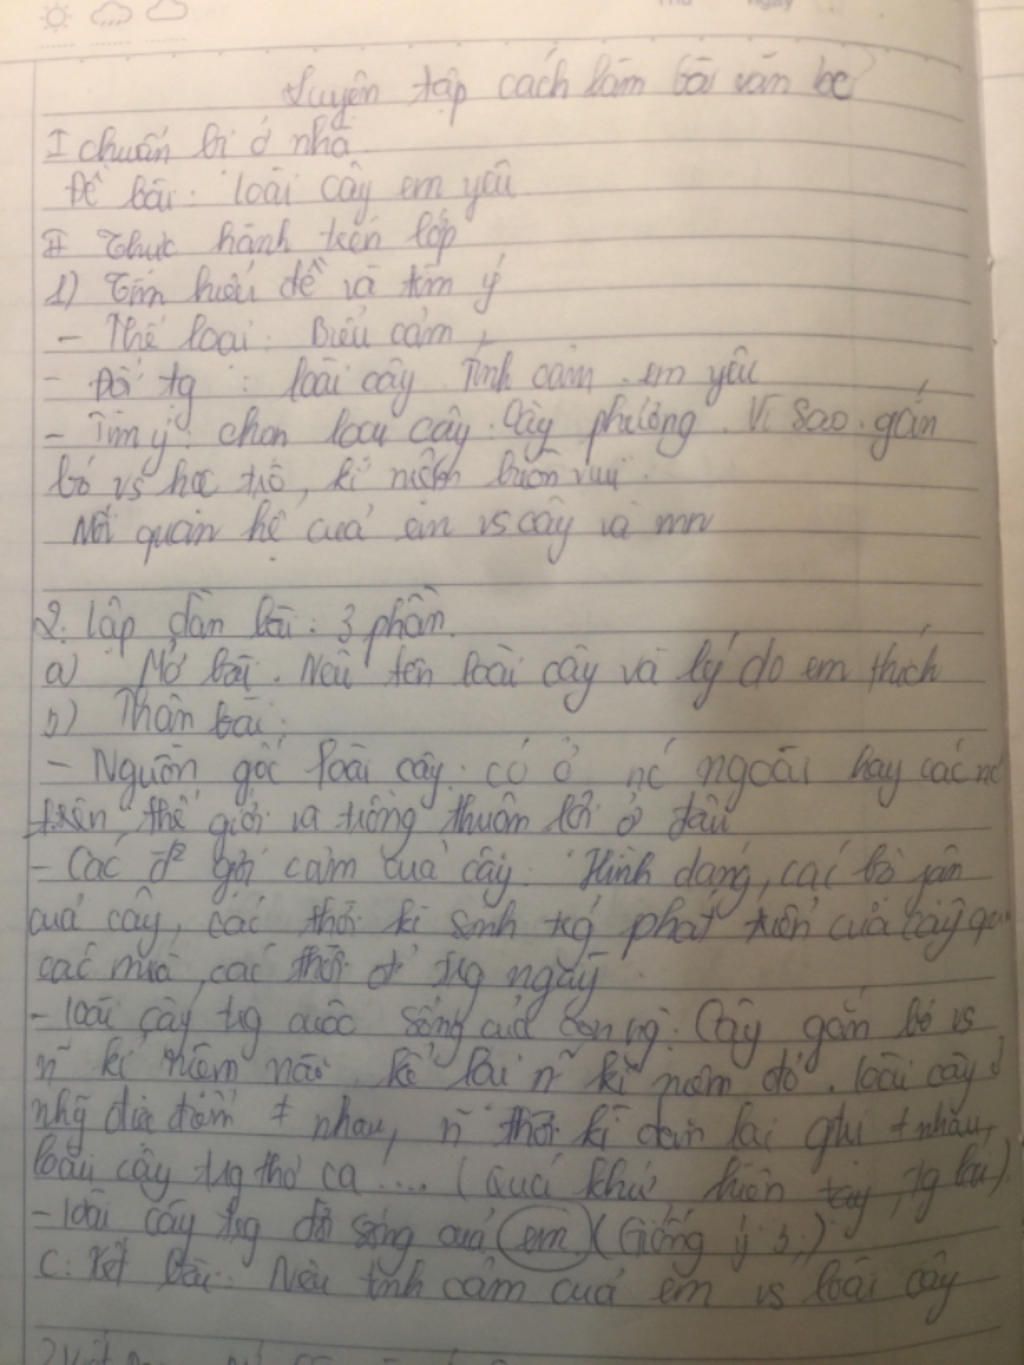 Luyện tập cách làm bài văn bc
I chuẩn bị ở nhà
Đề bài: loài cây em yêu
II Thực hành trên lớp
1) Tìm hiểu đề và tìm ý
- Thể loại: Biểu cảm
- Đối tg: loài cây Tình cảm em yêu
- Tìm ý: chọn loại cây: Cây phượng. Vì sao gắn
bó vs học trò, kỉ niệm buồn vui.
Mối quan hệ của em vs cây và mn
2. lập dàn bài: 3 phần.
a) Mở bài. Nêu tên loài cây và lý do em thích
b) Thân bài:
- Nguồn gốc loài cây: có ở nc ngoài hay các nc
trên thế giới và trồng thuận lợi ở đâu
- Các đ² gợi cảm của cây: Hình dáng, các bộ phận
của cây, các thời kì sinh trg phát triển của cây qua
các mùa, các thời đ' trg ngày
- loài cây trg cuộc sống của con ng: Cây gắn bó vs
n~ kỉ niệm nào, kể lại n~ kỉ niệm đó. loài cây ở
nhg địa điểm ≠ nhau, n~ thời kì đem lại ≠ nhau,
loài cây trg thơ ca .... (quá khứ, hiện tay, tg lai)
- loài cây trg đời sống của em (Giống ý 3.)
C: Kết bài: Nêu tình cảm của em vs loài cây